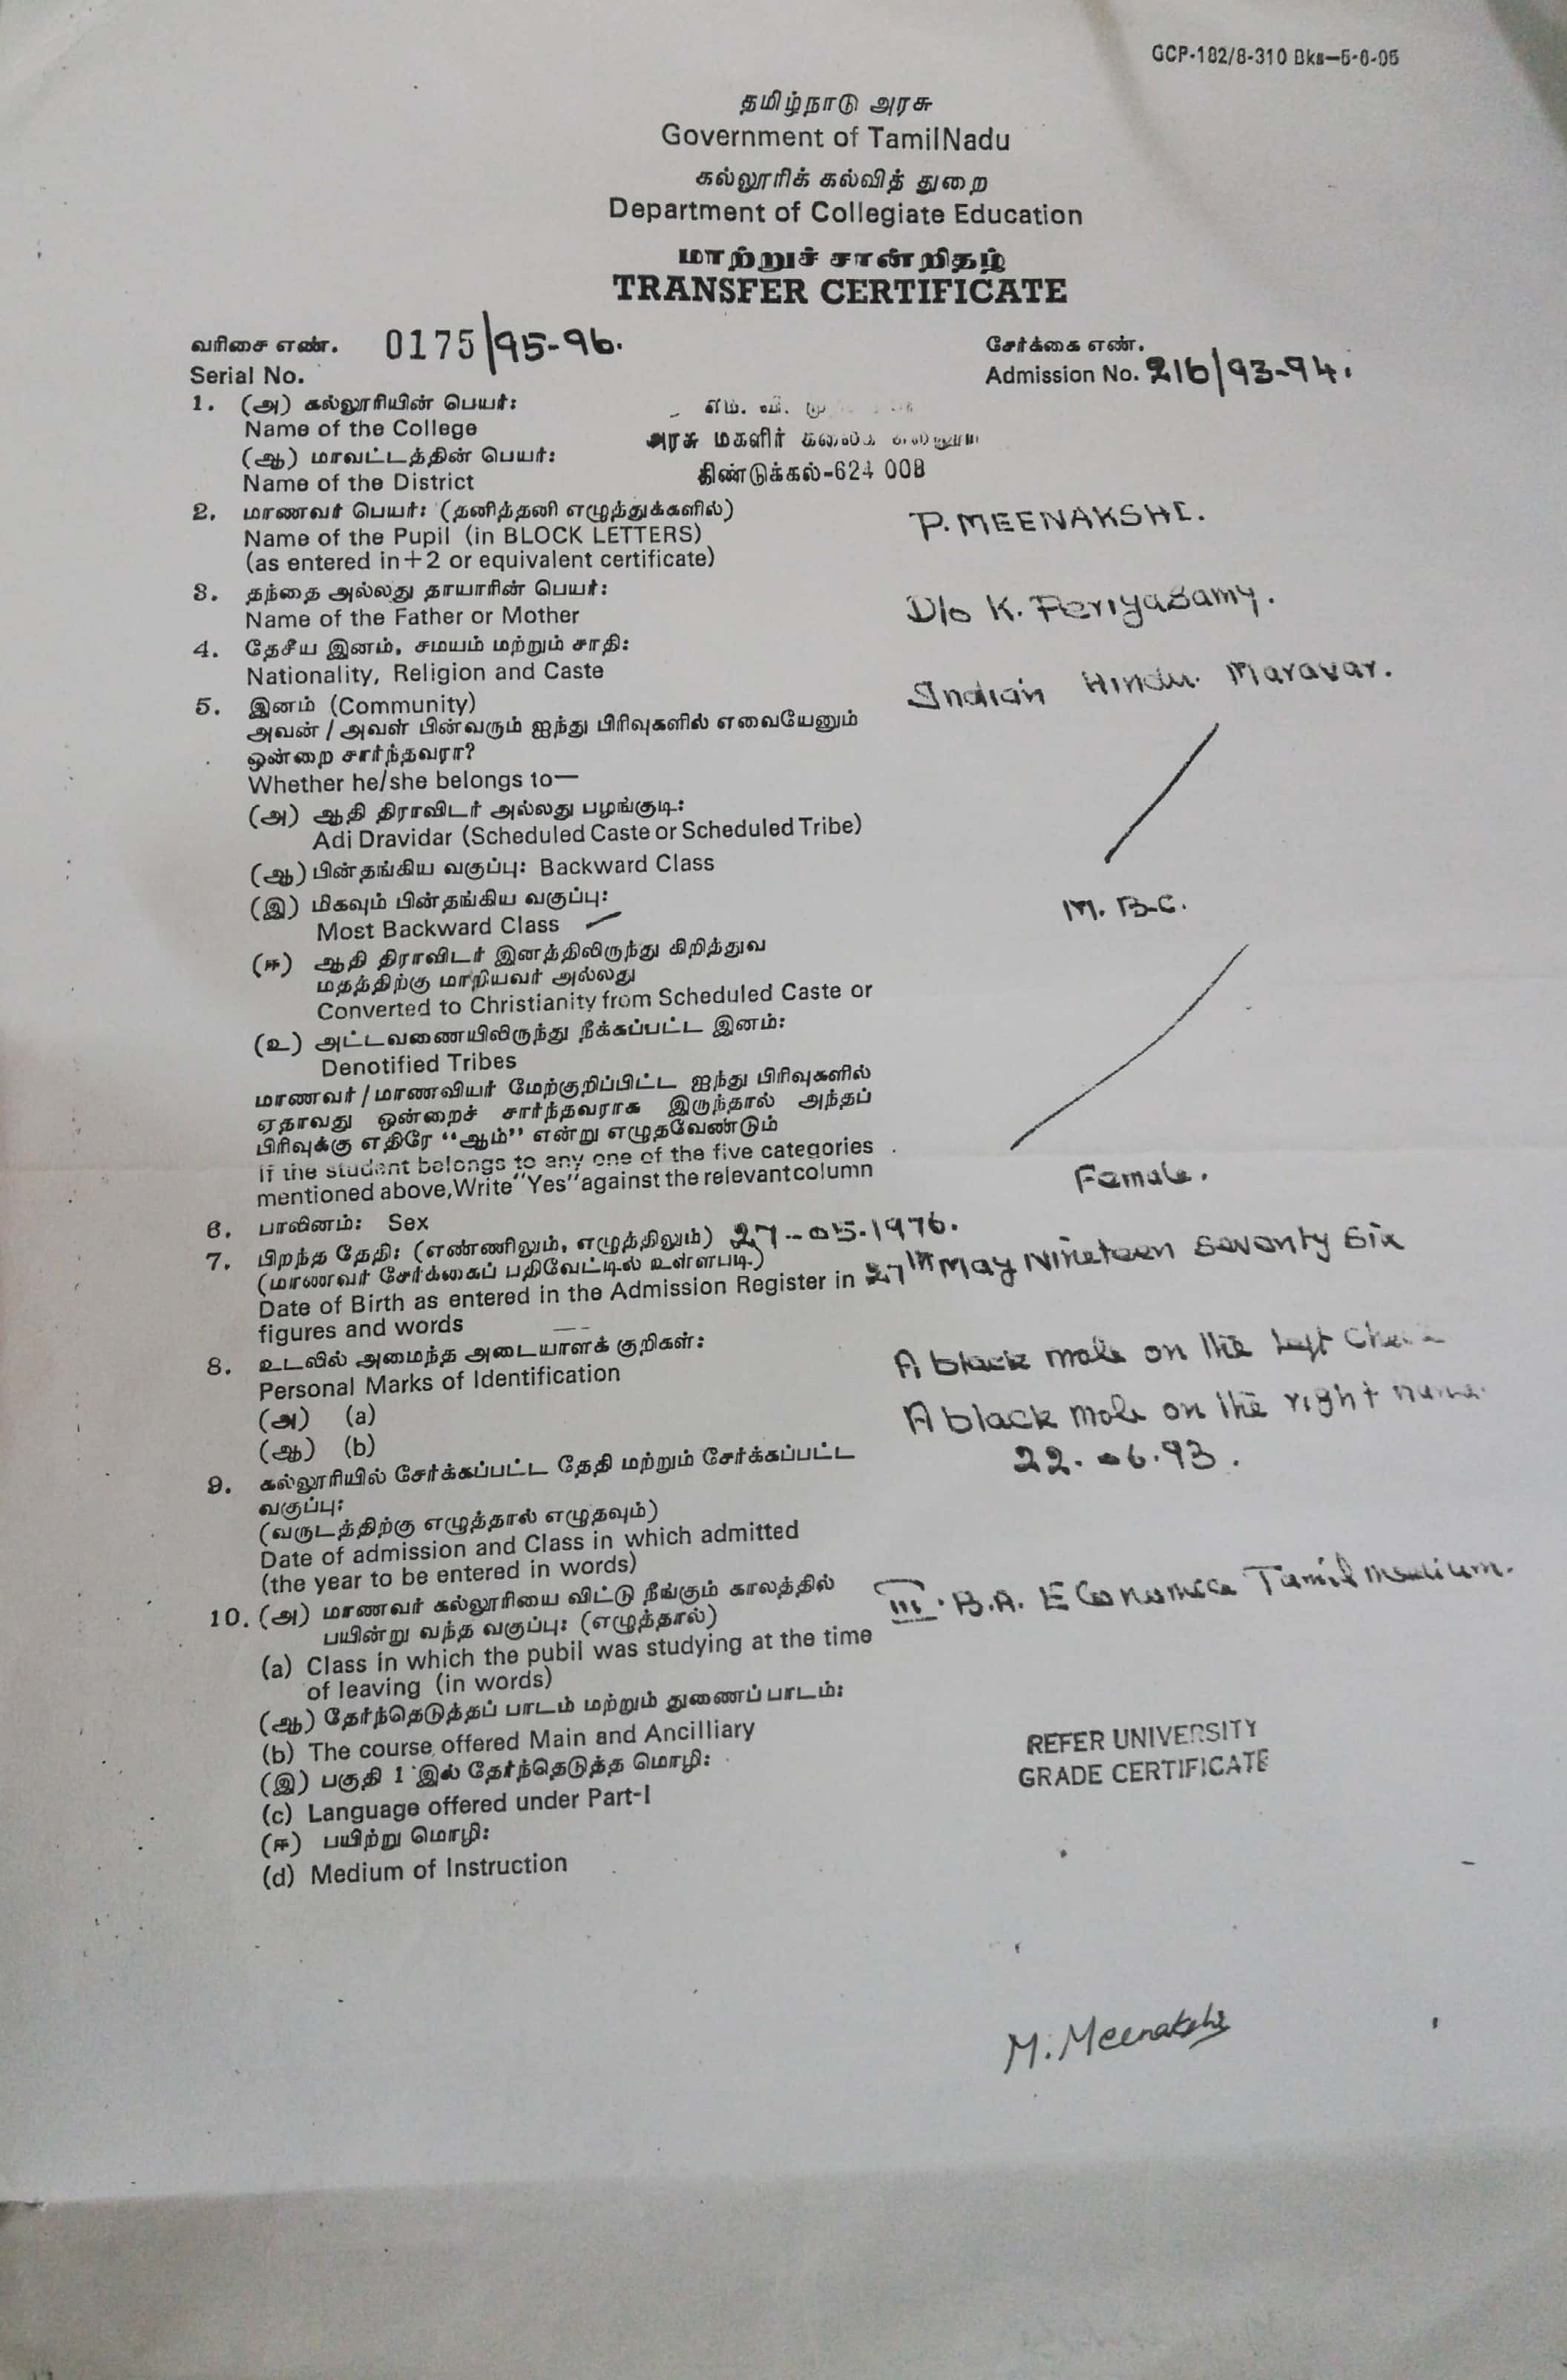 GCP-182/8-310 Bks—5-6-95
தமிழ்நாடு அரசு
Government of TamilNadu
கல்லூரிக் கல்வித் துறை
Department of Collegiate Education
மாற்றுச் சான்றிதழ்
TRANSFER CERTIFICATE
வரிசை எண். 0175/95-96.
Serial No.
சேர்க்கை எண்.
Admission No. 216/93-94.
1. (அ) கல்லூரியின் பெயர்: எம். வி.
Name of the College அரசு மகளிர்
(ஆ) மாவட்டத்தின் பெயர்: திண்டுக்கல்-624 008
Name of the District
2. மாணவர் பெயர்: (தனித்தனி எழுத்துக்களில்) P. MEENAKSHI.
Name of the Pupil (in BLOCK LETTERS)
(as entered in+2 or equivalent certificate)
3. தந்தை அல்லது தாயாரின் பெயர்: D/o K. Periyasamy.
Name of the Father or Mother
4. தேசீய இனம், சமயம் மற்றும் சாதி:
Nationality, Religion and Caste Indian Hindu Maravar.
5. இனம் (Community)
அவன் / அவள் பின்வரும் ஐந்து பிரிவுகளில் எவையேனும்
ஒன்றை சார்ந்தவரா?
Whether he/she belongs to—
(அ) ஆதி திராவிடர் அல்லது பழங்குடி:
Adi Dravidar (Scheduled Caste or Scheduled Tribe)
(ஆ) பின்தங்கிய வகுப்பு: Backward Class
(இ) மிகவும் பின்தங்கிய வகுப்பு: M. B.C.
Most Backward Class
(ஈ) ஆதி திராவிடர் இனத்திலிருந்து கிறித்துவ
மதத்திற்கு மாறியவர் அல்லது
Converted to Christianity from Scheduled Caste or
(உ) அட்டவணையிலிருந்து நீக்கப்பட்ட இனம்:
Denotified Tribes
மாணவர் / மாணவியர் மேற்குறிப்பிட்ட ஐந்து பிரிவுகளில்
ஏதாவது ஒன்றைச் சார்ந்தவராக இருந்தால் அந்தப்
பிரிவுக்கு எதிரே “ஆம்” என்று எழுதவேண்டும்
If the student belongs to any one of the five categories
mentioned above, Write “Yes” against the relevant column
6. பாலினம்: Sex Female.
7. பிறந்த தேதி: (எண்ணிலும், எழுத்திலும்) 27-05-1976.
(மாணவர் சேர்க்கைப் பதிவேட்டில் உள்ளபடி)
Date of Birth as entered in the Admission Register in 27th May Nineteen Seventy Six
figures and words
8. உடலில் அமைந்த அடையாளக் குறிகள்:
Personal Marks of Identification
(அ) (a) A black mole on the Left
(ஆ) (b) A black mole on the right
9. கல்லூரியில் சேர்க்கப்பட்ட தேதி மற்றும் சேர்க்கப்பட்ட 22.06.93.
வகுப்பு:
(வருடத்திற்கு எழுத்தால் எழுதவும்)
Date of admission and Class in which admitted
(the year to be entered in words)
10. (அ) மாணவர் கல்லூரியை விட்டு நீங்கும் காலத்தில் III. B.A. Economics Tamil medium.
பயின்று வந்த வகுப்பு: (எழுத்தால்)
(a) Class in which the pubil was studying at the time
of leaving (in words)
(ஆ) தேர்ந்தெடுத்தப் பாடம் மற்றும் துணைப் பாடம்:
(b) The course offered Main and Ancilliary
(இ) பகுதி 1 இல் தேர்ந்தெடுத்த மொழி:
(c) Language offered under Part-I
(ஈ) பயிற்று மொழி:
(d) Medium of Instruction
REFER UNIVERSITY
GRADE CERTIFICATE
M. Meenakshi